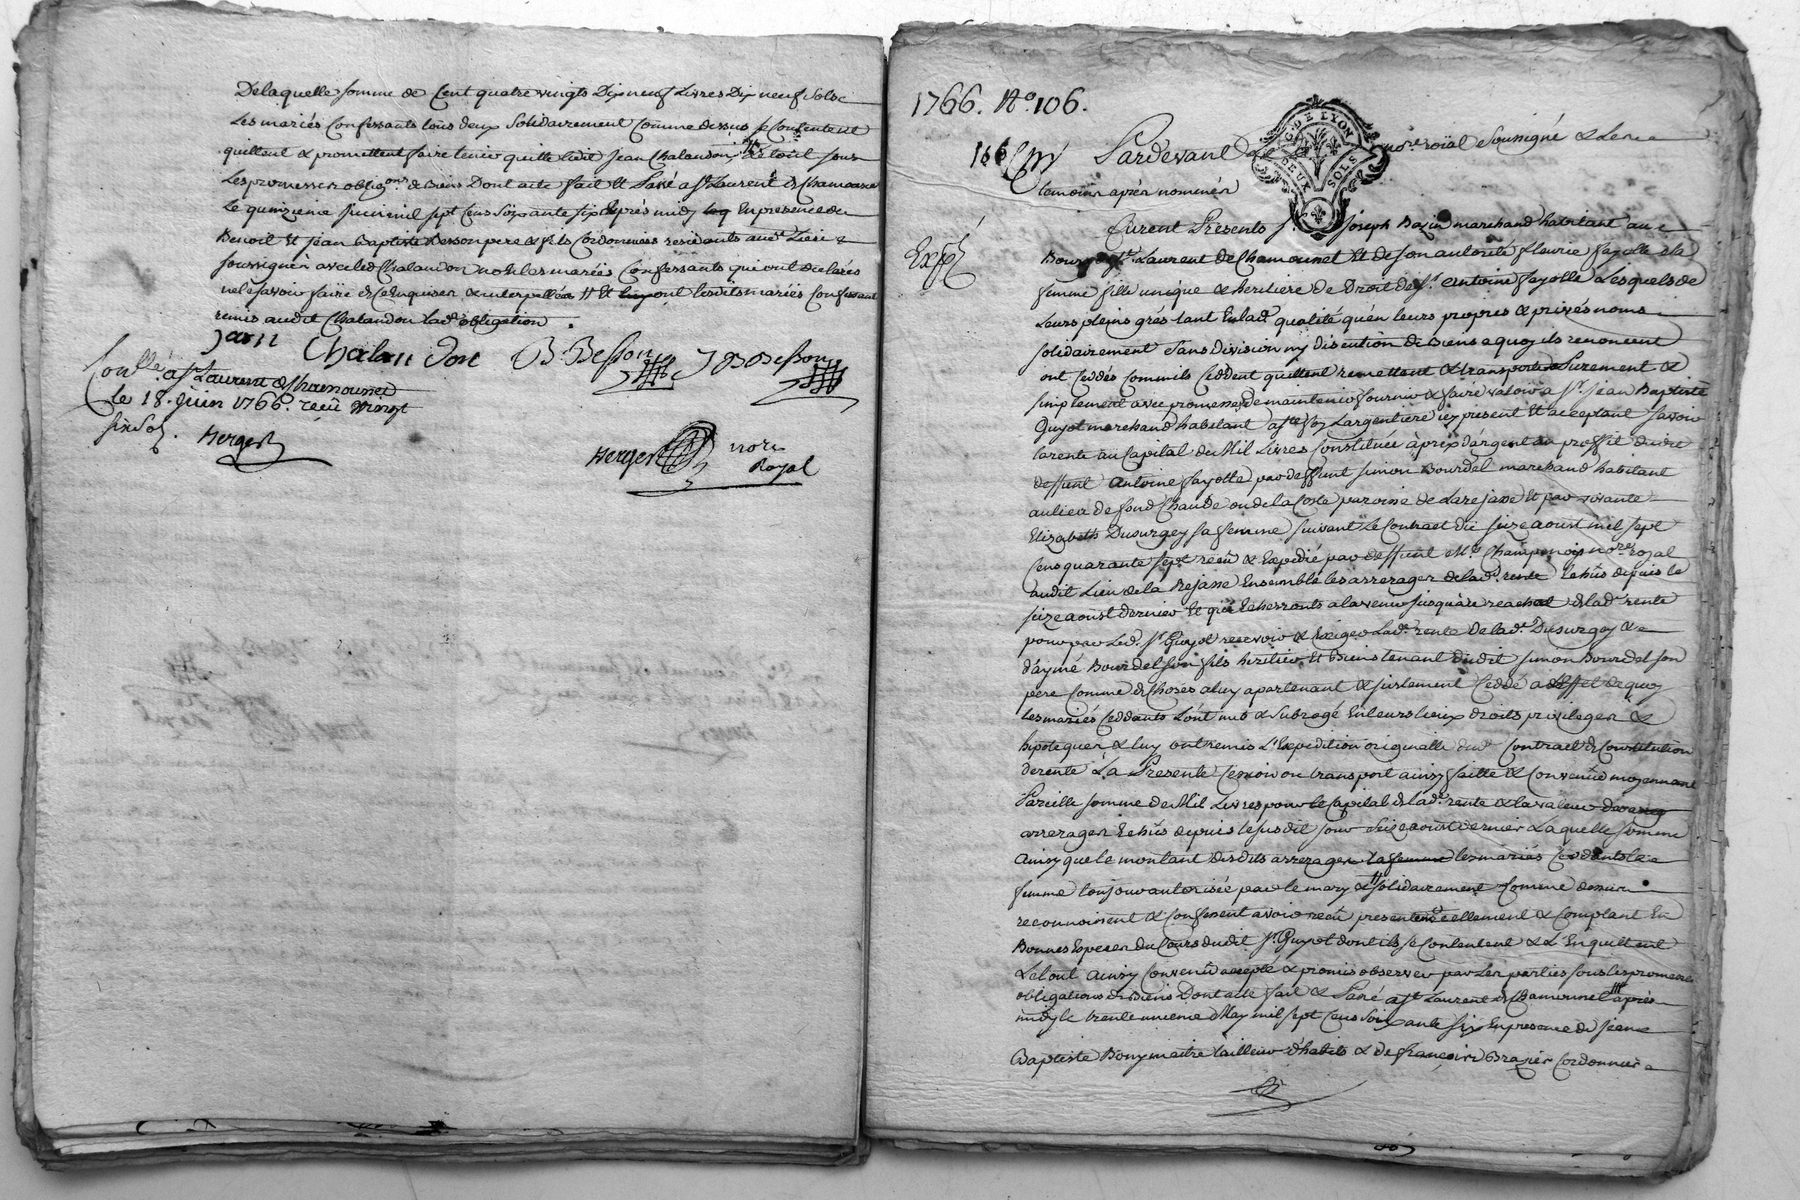 De laquelle somme de Cent quatre vingts Dix neuf Livres Dix neuf Sols
Les mariés Confessants tous deux Solidairement Comme dessus se Contentent
quittent & promettent faire tenir quitte ledit Jean Chalandon Le tout sous
Les promesses obligons de Biens Dont acte fait Et Passé a St Laurent de Chamousset
Le quinzieme Juin mil sept Cens Soixante six Après midy En presence de
Benoit Et jean Baptiste Besson pere & fils Cordonniers residants aud Lieu
soussignés avec led Chalandon non les mariés Confessants qui ont declarés
ne le savoir faire de ce Enquis & interpellés Et ont lesdits mariés Confessants
remis audit Chalandon lad obligation
jean Chalandon B. Besson J B Besson
Conllé a St Laurent de Chamousset
le 18. juin 1766. recû vingt
six sols. Berger
Berger nore
Royal
1766. No. 106.
106
Pardevant Le nore roïal Soussigné & Les
temoins après nommés
G. DE LYON
DEUX SOLS
Expé
Furent Presents Sr. joseph Bazin marchand habitant au
Bourg de St. Laurent de Chamousset Et de son autorité fleurie fayolle sa
femme fille unique & heritiere de Droit de Sr. antoine fayolle Lesquels de
Leurs pleins grés tant En lad. qualité qu'en leurs propres & privés noms
solidairement Sans division ny discution de Biens a quoy ils renoncent
ont Ceddés Commils Ceddent quittent remettent & transportent Purement &
simplement avec promesse de maintenir fournir & faire valoir a Sr. jean Baptiste
Guyot marchand habitant a Largentiere icy present Et acceptant Savoir
la rente au Capital de Mil Livres Constituée à prix d'argent au proffit dudit
deffunt Antoine fayolle par deffunt Simon Bourdel marchand habitant
au lieu de fond Chaude ou de la Coste paroisse de Larejasse Et par vivante
Elizabeth Dusurgey sa femme suivant Le Contract du seize aoust mil sept
Cens quarante sept recû & Expedié par deffunt Me. Champenois nore royal
audit Lieu de la Rejasse Ensemble les arrerages de lad. rente Echûs depuis le
seize aoust dernier Et qui Echerronts a l'avenir jusqu'au reachat de lad. rente
pour par Led. Sr Guyot recevoir & Exiger Lad. rente de lad. Dusurgey &
d'aymé Bourdel son fils heritier Et Biens tenant dudit Simon Bourdel son
pere Comme de Choses a luy apartenant & justement Ceddé a L'effet de quoy
Les mariés Ceddants L'ont mis & subrogé En leurs lieux droits privileges &
hipoteques & luy ont remis L'Expedition originalle dud. Contract de Constitution
de rente La Presente Cession ou transport ainsy faitte & Convenüe moyennant
Pareille somme de Mil Livres pour le Capital de lad. rente & la valeur
arrerages Echûs depuis le susdit jour Seize aoust dernier Laquelle somme
Ainsy que le montant desdits arrerages les mariés Ceddants la
femme toujours autorisée par le mary & Solidairement Comme dessus
reconnoissent & Confessent avoir recû presentement reellement & Comptant En
Bonnes Especes du Cours dudit Sr. Guyot dont ils se Contentent & L'En quittent
Le tout Ainsy Convenu accepté & promis observer par Les parties sous les promesses
obligations de Biens Dont acte fait & Passé a St Laurent de Chamousset après
midy le trente unieme May mil sept Cens Soixante six En presence de Jean
Baptiste Bony maitre tailleur d'habits & de françois Brazier Cordonnier